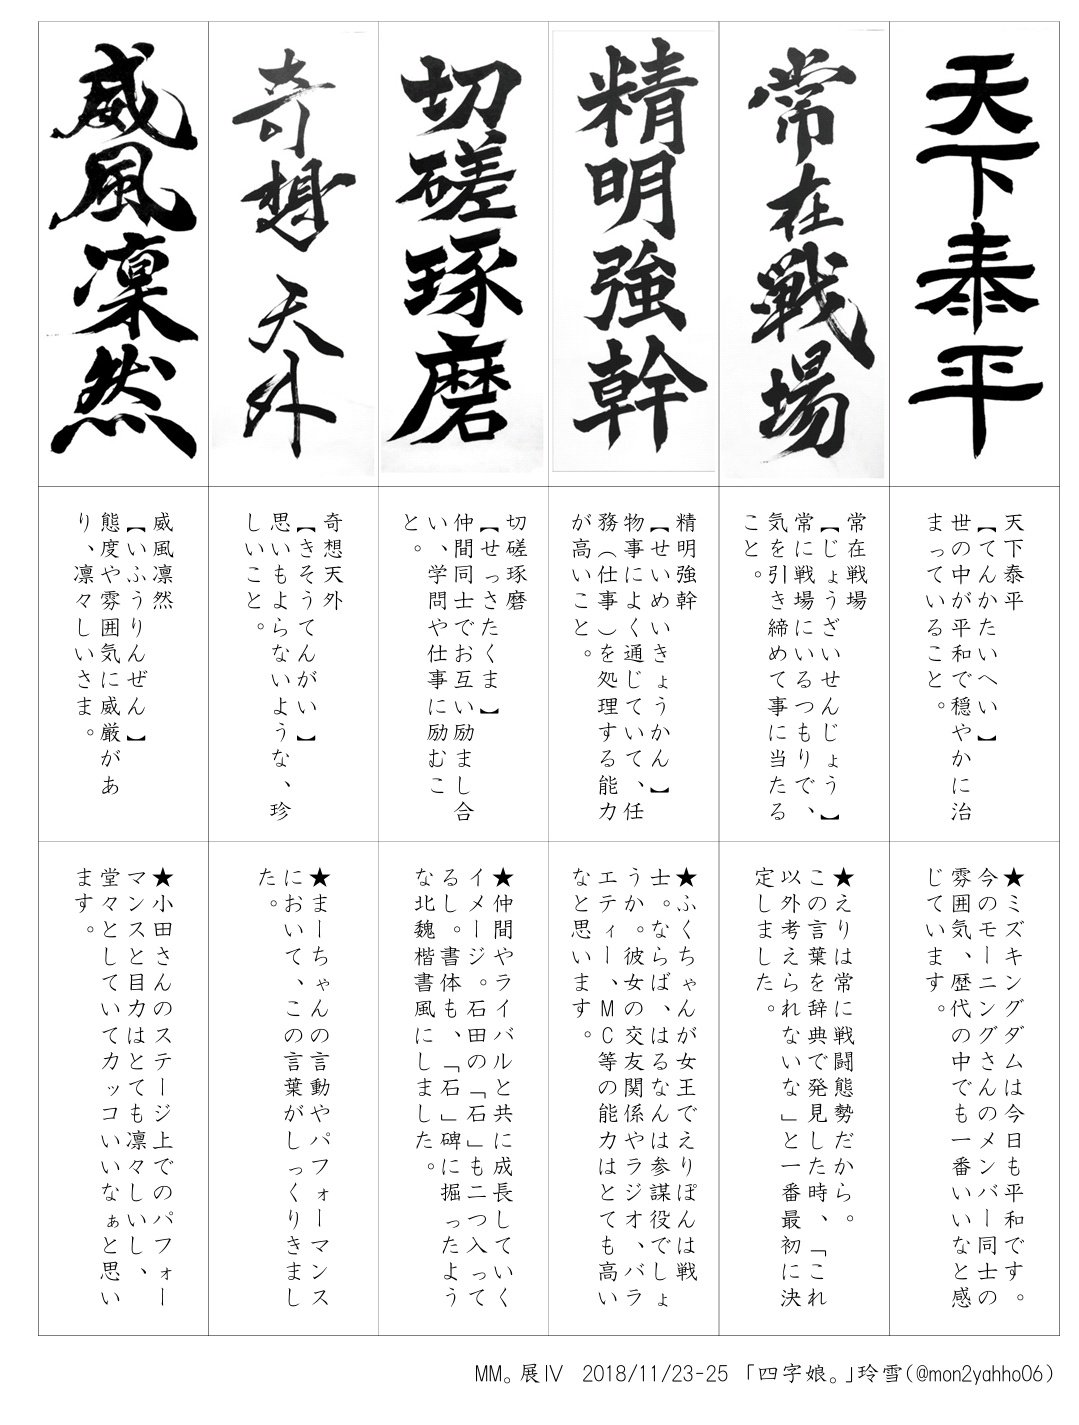 天下泰平
常在戦場
精明強幹
切磋琢磨
奇想天外
威風凛然
天下泰平
【てんかたいへい】
世の中が平和で穏やかに治
まっていること。
常在戦場
【じょうざいせんじょう】
常に戦場にいるつもりで、
気を引き締めて事に当たる
こと。
精明強幹
【せいめいきょうかん】
物事によく通じていて、任
務（仕事）を処理する能力
が高いこと。
切磋琢磨
【せっさたくま】
仲間同士でお互い励まし合
い、学問や仕事に励むこ
と。
奇想天外
【きそうてんがい】
思いもよらないような、珍
しいこと。
威風凛然
【いふうりんぜん】
態度や雰囲気に威厳があ
り、凛々しいさま。
★ミズキングダムは今日も平和です。
今のモーニングさんのメンバー同士の
雰囲気、歴代の中でも一番いいなと感
じています。
★えりは常に戦闘態勢だから。
この言葉を辞典で発見した時、「これ
以外考えられないな」と一番最初に決
定しました。
★ふくちゃんが女王でえりぽんは戦
士。ならば、はるなんは参謀役でしょ
うか。彼女の交友関係やラジオ、バラ
エティー、MC等の能力はとても高い
なと思います。
★仲間やライバルと共に成長していく
イメージ。石田の「石」も二つ入って
るし。書体も、「石」碑に掘ったよう
な北魏楷書風にしました。
★まーちゃんの言動やパフォーマンス
において、この言葉がしっくりきまし
た。
★小田さんのステージ上でのパフォー
マンスと目力はとても凛々しいし、
堂々としていてカッコいいなぁと思い
ます。
MM。展Ⅳ　2018/11/23-25　「四字娘。」玲雪（@mon2yahho06）